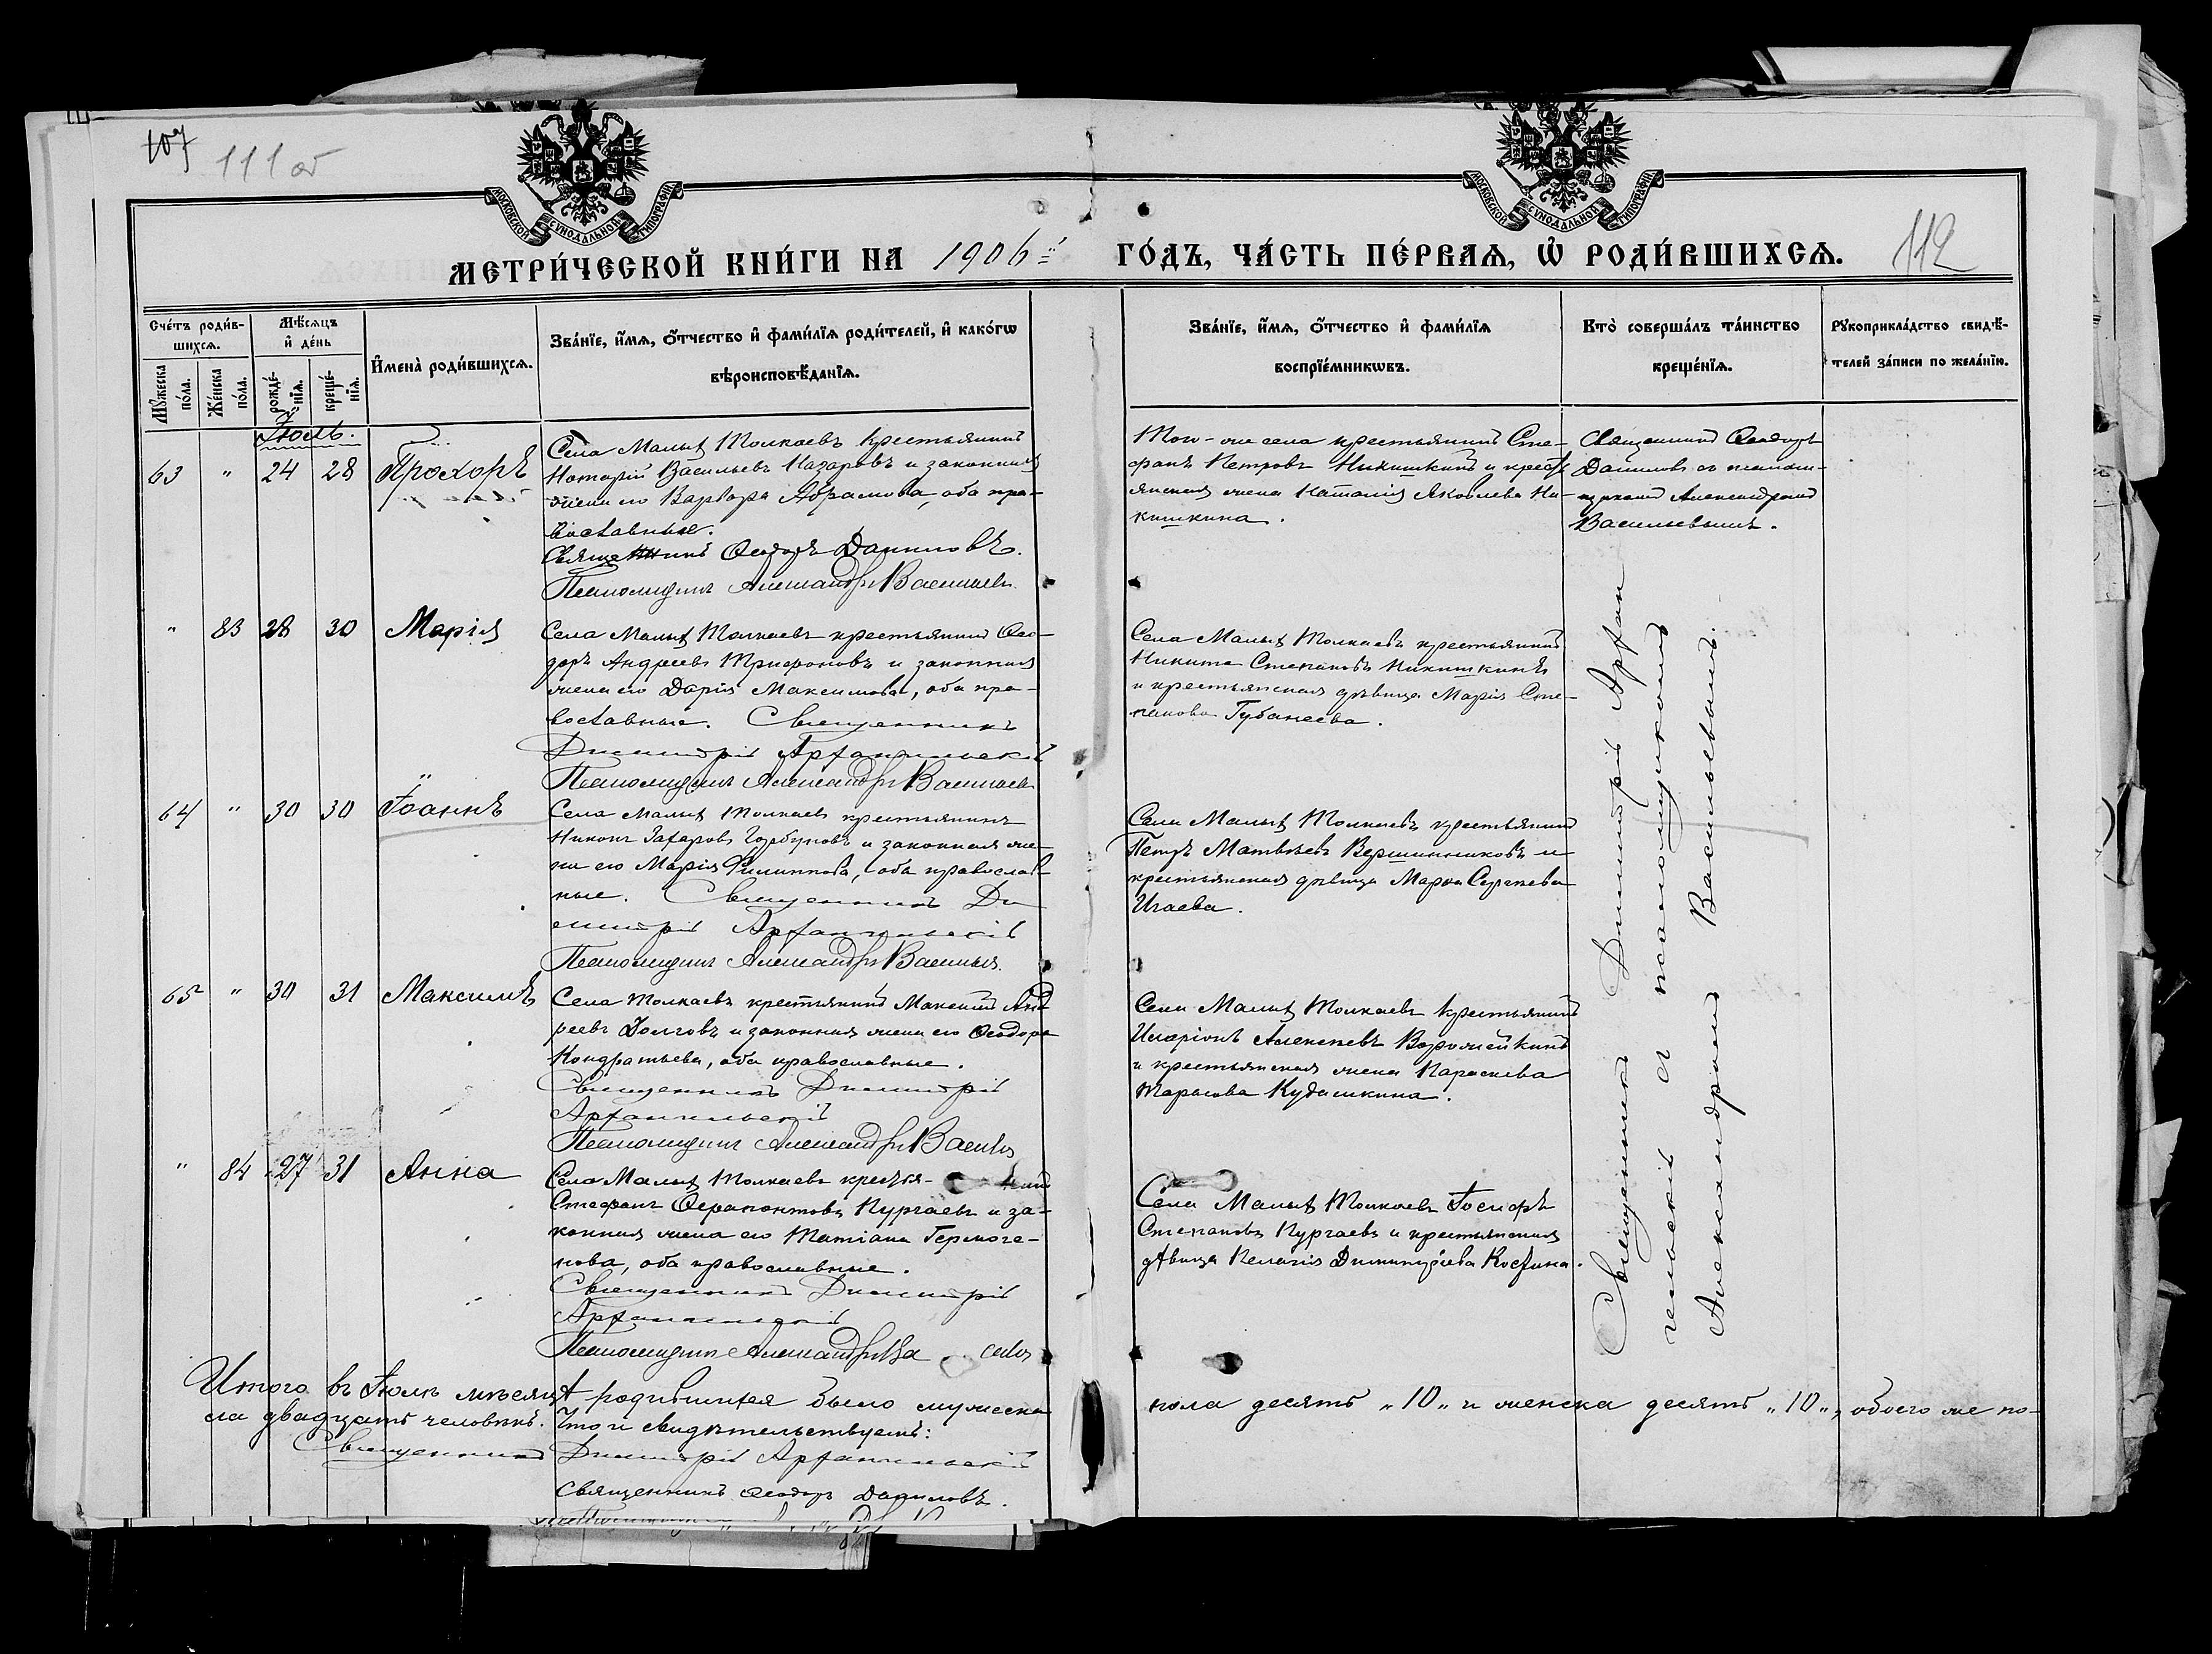 107
111 об
112
МОСКОВСКОЙ СѴНОДАЛЬНОЙ ТИПОГРАФІИ
МОСКОВСКОЙ СѴНОДАЛЬНОЙ ТИПОГРАФІИ
МЕТРИ́ЧЕСКОЙ КНИ́ГИ НА 1906й ГО́ДЪ, ЧА́СТЬ ПЕ́РВАѦ, Ѡ҆ РОДИ́ВШИХСѦ.
Сче́тъ роди́в-
шихсѧ.
Мꙋ́жеска по́ла.
Же́нска по́ла.
Мѣ́сѧцъ
и҆ де́нь
рожде́-
нїѧ.
креще́-
нїѧ.
И҆мена̀ роди́вшихсѧ.
Зва́нїе, и҆́мѧ, ѻ҆́тчество и҆ фами́лїѧ роди́телей, и҆ како́гѡ
вѣроисповѣ́данїѧ.
Зва́нїе, и҆́мѧ, ѻ҆́тчество и҆ фами́лїѧ
воспрїе́мникѡвъ.
Кто̀ соверша́лъ та́инство
креще́нїѧ.
Рꙋкоприкла́дство свидѣ́-
телей за́писи по жела́нїю.
Іюль.
63 " 24 28 Прохоръ
Села Малых Толкаевъ крестьянинъ
Назаровъ и законная
жена его Варвара Абрамова, оба пра-
вославные.
Священникъ Ѳеодоръ Даниловъ.
Псаломщикъ Александръ Васильевъ
Того-же села крестьянинъ Сте-
фанъ Петровъ Никишкинъ и кресть
янская жена Наталія Яковлева Ни-
кишкина.
Священникъ Ѳеодоръ
Даниловъ съ псалом-
щикомъ Александромъ
Васильевымъ.
" 83 28 30 Марія
Села Малых Толкаевъ крестьянинъ Ѳео-
доръ Андреевъ Трифоновъ и законная
жена его Дарія Максимова, оба пра-
вославные. Священникъ
Димитрій Архангельскій
Псаломщикъ Александръ Васильевъ
Села Малых Толкаевъ крестьянинъ
Никита Степановъ Никишкинъ
и крестьянская дѣвица Марія Сте-
панова Губанеева.
64 " 30 30 Іоаннъ
Села Малых Толкаевъ крестьянинъ
Никонъ Захаровъ Горбуновъ и законная же-
на его Марія Филиппова, оба православ-
ные. Священникъ Ди
митрій Архангельскій
Псаломщикъ Александръ Васильев.
Села Малых Толкаевъ крестьянинъ
Петръ Матвѣевъ Вершинниковъ и
крестьянская дѣвица Марѳа Сергеева
Игаева.
65 " 30 31 Максимъ
Села Толкаевъ крестьянинъ Максимъ Анд
реевъ Долговъ и законная жена его Ѳеодора
Кондратьева, оба православные.
Священникъ Димитрій
Архангельскій
Псаломщикъ Александръ Васильев
Села Малых Толкаевъ крестьянинъ
Иларіонъ Алексеевъ Ворожейкинъ
и крестьянская жена Параскева
Тарасова Кудашкина.
" 84 27 31 Анна
Села Малых Толкаевъ крестья-
Стефанъ Ѳерапонтовъ Пургаевъ и за-
конная жена его Татіана Гермоге-
нова, оба православные.
Священникъ Димитрій
Архангельскій
Псаломщикъ Александръ Ва
Села Малых Толкаевъ Іосифъ
Степановъ Пургаевъ и крестьянская
дѣвица Пелагія Димитріева Костина.
Священникъ Димитрій Архан
гельскій съ псаломщикомъ
Александромъ Васильевымъ.
Итого въ Іюлѣ мѣсяцѣ родившихся было мужеска пола десять "10" и женска десять "10", обоего же по-
ла двадцать человѣкъ. Что и свидѣтельствуемъ:
Священникъ Димитрій Архангельскій
Священникъ Ѳеодоръ Даниловъ.